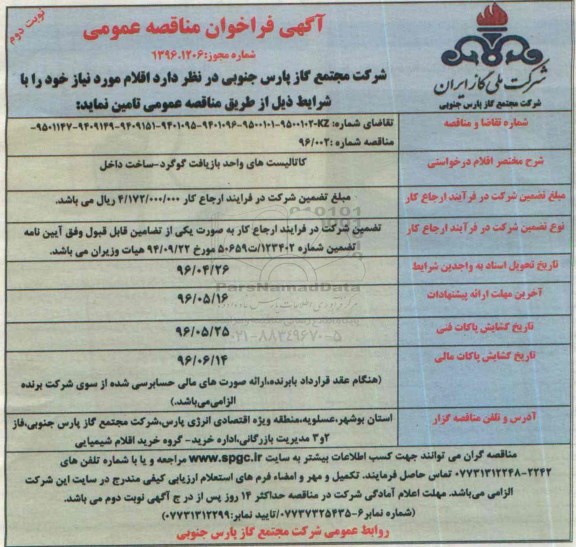 نوبت دوم
آگهی فراخوان مناقصه عمومی
شماره مجوز: ۱۳۹۶.۱۲۰۶
شرکت ملی گاز ایران
شرکت مجتمع گاز پارس جنوبی
شرکت مجتمع گاز پارس جنوبی در نظر دارد اقلام مورد نیاز خود را با
شرایط ذیل از طریق مناقصه عمومی تامین نماید:
شماره تقاضا و مناقصه
تقاضای شماره: KZ-۹۵۰۰۱۰۲-۹۵۰۰۱۰۱-۹۴۰۱۰۹۶-۹۴۰۱۰۹۵-۹۴۰۹۱۵۱-۹۴۰۹۱۴۹-۹۵۰۱۱۴۷-
مناقصه شماره :۹۶/۰۰۲
شرح مختصر اقلام درخواستی
کاتالیست های واحد بازیافت گوگرد-ساخت داخل
مبلغ تضمین شرکت در فرآیند ارجاع کار
مبلغ تضمین شرکت در فرایند ارجاع کار ۴/۱۷۲/۰۰۰/۰۰۰ ریال می باشد.
نوع تضمین شرکت در فرآیند ارجاع کار
تضمین شرکت در فرایند ارجاع کار به صورت یکی از تضامین قابل قبول وفق آیین نامه
تضمین شماره ۱۲۳۴۰۲/ت۵۰۶۵۹ مورخ ۹۴/۰۹/۲۲ هیات وزیران می باشد.
تاریخ تحویل اسناد به واجدین شرایط
۹۶/۰۴/۲۶
آخرین مهلت ارائه پیشنهادات
۹۶/۰۵/۱۶
تاریخ گشایش پاکات فنی
۹۶/۰۵/۲۵
تاریخ گشایش پاکات مالی
۹۶/۰۶/۱۴
(هنگام عقد قرارداد بابرنده،ارائه صورت های مالی حسابرسی شده از سوی شرکت برنده
الزامی‌می‌باشد.)
آدرس و تلفن مناقصه گزار
استان بوشهر،عسلویه،منطقه ویژه اقتصادی انرژی پارس،شرکت مجتمع گاز پارس جنوبی،فاز
۲و۳ مدیریت بازرگانی،اداره خرید- گروه خرید اقلام شیمیایی
مناقصه گران می توانند جهت کسب اطلاعات بیشتر به سایت www.spgc.ir مراجعه و یا با شماره تلفن های
۰۷۷۳۱۳۱۲۲۴۸-۲۲۴۲ تماس حاصل فرمایند. تکمیل و مهر و امضاء فرم های استعلام ارزیابی کیفی مندرج در سایت این شرکت
الزامی می‌باشد. مهلت اعلام آمادگی شرکت در مناقصه حداکثر ۱۴ روز پس از در ج آگهی نوبت دوم می باشد.
(شماره نمابر۶-۰۷۷۳۷۳۲۵۴۳۵/تایید نمابر:۰۷۷۳۱۳۱۲۲۹۹)
روابط عمومی شرکت مجتمع گاز پارس جنوبی
ParsNamadData
۰۲۱-۸۸۳۴۹۶۷۰-۵